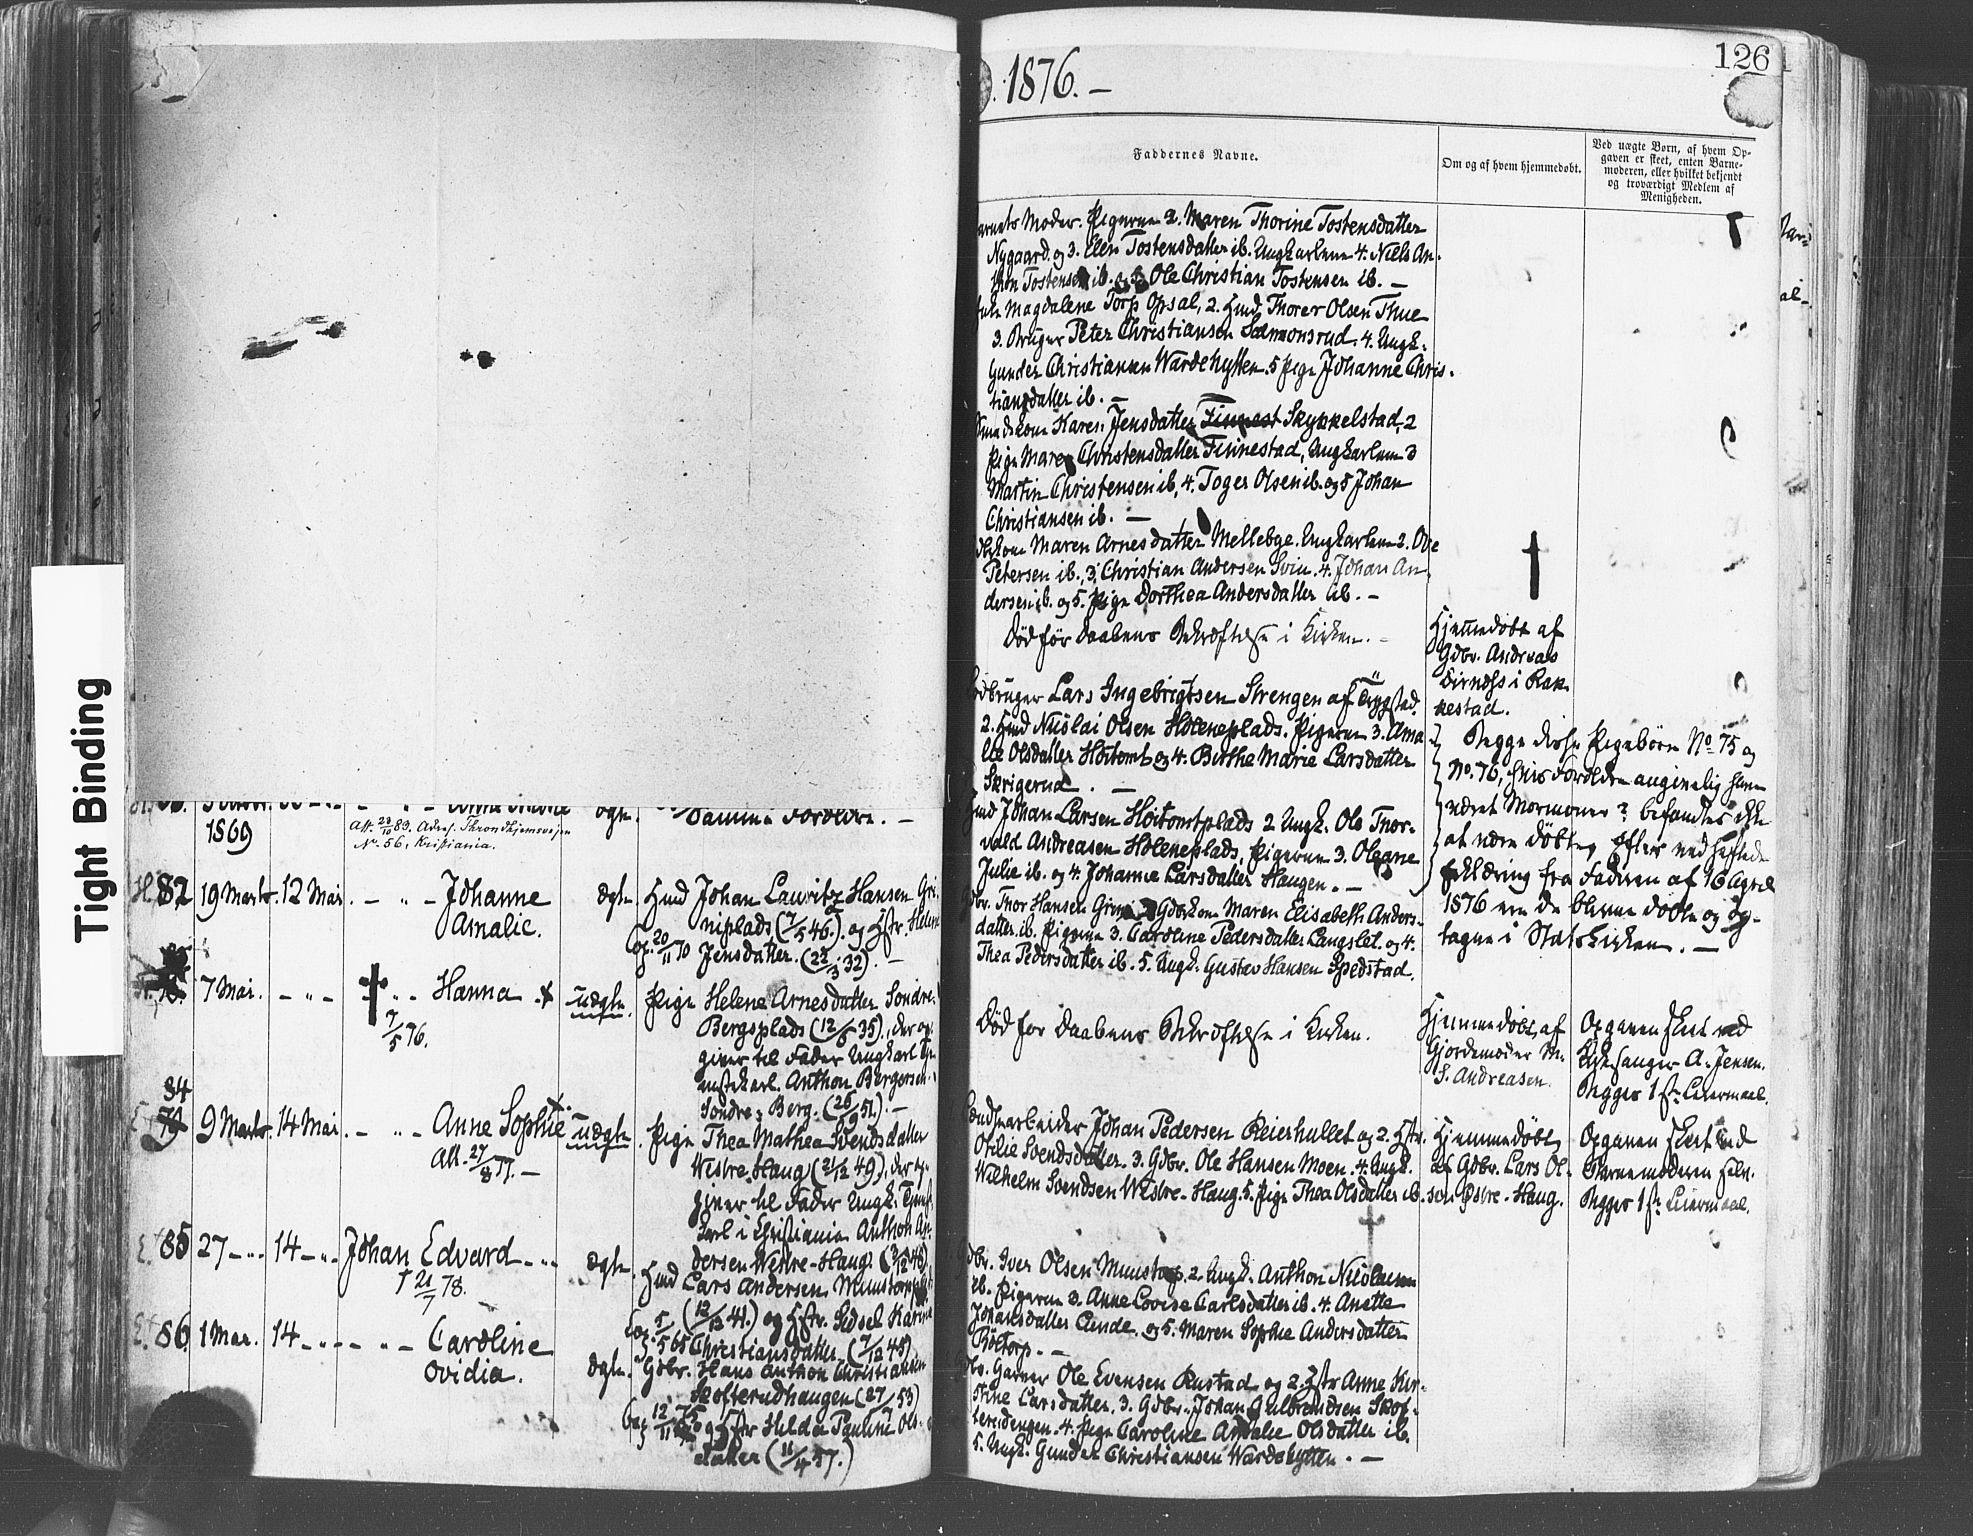 Tight Binding
1869
Att. 23/10 89. Adres. Throndhjemsveien
No. 56, Kristiania.
ægte.
samme Forældre. —
82 19 Marts. 12 Mai. — „ — Johanne
Amalie.
ægte.
Hmd Johan Lauritz Hansen Gri-
niplads (7/5 46.) og Hstr. Helene
Cop. 20/11 70 Jensdatter. (22/3 32). —
7 Mai. — „ — † „ - Hanna
7/5 76.
uægte.
Pige Helene Arnesdatter Søndre-
Bergsplads (12/6 35), der op-
giver til Fader Ungkarl Tje-
nestekarl. Anthon Bergersen
Søndre-Berg. (26/9 51.) —
84
79 9 Marts 14 Mai. — „ — Anne Sophie
Att. 27/8 77. —
uægte
Pige Thea Mathea Svendsdatter
Westre-Haug (21/12 49), der op-
giver til Fader Ungk. Tjenest-
karl i Christiania Anthon An-
dersen Westre-Haug. (3/12 48)
85 27 — „ 14 — „ Johan Edvard — „
† 21/7 78.
ægte.
Hmd Lars Andersen Munstorp
(12/12 41.) og Hstr. Sidsel Karine
Christiansdatter (7/12 45)
86 1 Mai. 14 — „ — „ — Caroline
Ovidia.
ægte.
Gdbr. Hans Anthon Christiansen
Skofterudhaugen (27/7 53)
og Hstr Hilda Pauline Ols-
datter (11/4 57.)
126
1876. —
Faddernes Navne.
Om og af hvem hjemmedøbt.
Ved uægte Børn, af hvem Op-
gaven er skeet, enten Barne-
moderen, eller hvilket bekjendt
og troværdigt Medlem af
Menigheden.
Moder. Pigerne 2. Maren Thorine Tostensdatter
Nygaard. og 3. Elen Tostensdatter ib. Ungkarlene 4. Niels An-
thon Tostensen ib. og 5. Ole Christian Tostensen ib. —
Magdalene Torp Opsal, 2. Hmd Thorer Olsen Thue
3. Bruger Peter Christiansen Salmonsrud. 4. Ungk.
Gunder Christiansen Wardehytten. 5 Pige Johanne Chris-
tiansdatter ib. —
Karen Jensdatter Finnest Skykkelstad, 2
Pige Maren Christensdatter Finnestad, Ungkarlene 3
Martin Christensen ib, 4. Toger Olsen ib. og 5 Johan
Christiansen ib. —
Maren Arnesdatter Mellebye. Ungkarlene 2. Ove
Petersen ib., 3. Christian Andersen Svin. 4. Johan An-
dersen ib. og 5. Pige Dorthea Andersdatter ib. —
Død før Daabens Bekræftelse i Kirken. -
Hjemmedøbt af
Gdbr. Andreas
i Rak-
kestad.
Lars Ingebrigtsen Strengen af Trygstad.
2. Hmd Nicolai Olsen Holeneplads. Pigerne 3. Ama-
lie Olsdatter Høitomt og 4. Birthe Marie Larsdatter
Skrigerud. —
Hmd Johan Larsen Høitomtplads 2 Ungk. Ole Thor-
vald Andreasen Holeneplads, Pigerne 3. Oleane
Julie ib. og 4. Johanne Larsdatter Haugen. —
Begge disse Pigebørn No. 75 og
No. 76, hvis Forældre angivelig have
været Mormoner? befandtes ikke
at være døbte, efter vedheftede
Erklæring fra Faderen af 16 April
1876 ere de blevne døbte og op-
tagne i Statskirken. —
Gdbr. Thor Hansen Grini 2 Gdbrkone Maren Elisabeth Anders-
datter ib. Pigerne 3. Caroline Pedersdatter Langslet. og 4.
Thea Pedersdatter ib. 5. Ungk. Gustav Hansen Spedstad.
Død før Daabens Bekræftelse i Kirken.
Hjemmedøbt, af
Gjordemoder M.
S. Andreasen.
Opgaven skeet ved
Kirkesanger A. Jensen.
Begges 1ste Leiermaal.
Johan Pedersen Reierhullet og 2. Hstr.
Otilie Svendsdatter. 3. Gdbr. Ole Hansen Moen. 4. Ungk.
Wilhelm Svendsen Westre-Haug. 5. Pige Thea Olsdatter ib.
Hjemmedøbt,
af Gdbr. Lars Ol-
sen Østre-Haug.
Opgaven skeet ved
Barnemoderen selv.
Begges 1ste Leiermaal.
Gdbr. Iver Olsen Munstorp. 2. Ungk. Anthon Nicolaisen
ib. Pigerne 3. Anne Lovise Carlsdatter ib. 4. Anette
Johansdatter Lunde. og 5. Maren Sophie Andersdatter
Bøltorp. —
Gdbr. Garver Ole Evensen Rustad og 2. Hstr Anne Kir-
stine Larsdatter. 3. Gdbr. Johan Gulbrandsen Skof-
terudengen. 4. Pige Caroline Amalie Olsdatter ib.
5. Ungk. Gunder Christiansen Wardehytten. —